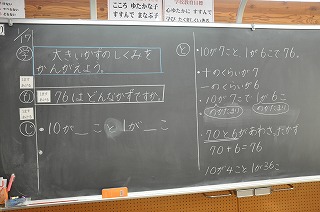 こころ ゆたかな子
すすんで まなぶ子
学校教育目標
心ゆたかに すすんで
学び たくまし
大きいかずのしくみを
かんがえよう。
76は どんなかずですか。
・10が＿こと 1が＿こ
・10が7こと 1が6こで 76。
十のくらいが7
一のくらいが6
10が7こで 1が6こ
70と6があわさったかず
70+6=76
10が4こと 1が36こ